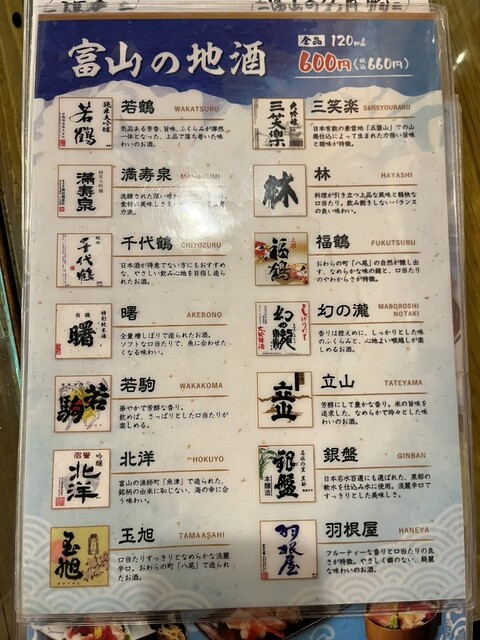 富山の地酒
全品 120ml
600円(税込660円)
純米大吟醸
若鶴
若鶴 WAKATSURU
気品ある芳香、旨味、ふくらみが渾然
一体となった、上品で落ち着いた味
わいのお酒。
満寿泉
満寿泉 MASUIZUMI
洗練された深い味わい
食材の美味しさを
力派。
千代鶴
千代鶴 CHIYOZURU
日本酒が得意でない方にもおすすめ
な、やさしい飲み心地を目指し造ら
れたお酒。
有磯 特別純米酒
曙
曙 AKEBONO
全量槽しぼりで造られたお酒。
ソフトな口当たりで、魚に合わせた
くなる味わい。
若駒
若駒 WAKAKOMA
華やかで芳醇な香り。
飲めば、さっぱりとした口当たりが
楽しめる。
吟醸
北洋
北洋 HOKUYO
富山の漁師町「魚津」で造られ、
銘柄の由来に恥じない、海の幸に合
う味わい。
玉旭
玉旭 TAMAASAHI
口当たりすっきりとなめらかな淡麗
辛口。おわらの町「八尾」で造られ
たお酒。
大吟醸
三笑楽
三笑楽 SANSYOURAKU
日本有数の豪雪地「五箇山」での山
廃仕込によって生まれた力強い旨味
と酸味が特徴。
林
林 HAYASHI
料理が引き立つ上品な風味と軽快な
口当たり。飲み飽きしないバランス
の良い味わい。
福鶴
福鶴 FUKUTSURU
おわらの町「八尾」の自然が醸し出
す、なめらかな味の綾と、口当たり
のやわらかさが特徴。
しぼりたて
幻の瀧
大吟醸酒
幻の瀧 MABOROSHI
NOTAKI
香りは控えめに、しっかりとした味
のふくらみと、心地よい喉越しが楽
しめるお酒。
立山
立山 TATEYAMA
芳醇にして豊かな香り。米の旨味を
追求した、なめらかで玲々とした味
わいのお酒。
名水の里 黒部
銀盤
本醸造
銀盤 GINBAN
日本名水百選にも選ばれた、黒部の
軟水を仕込み水に使用。淡麗辛口で
すっきりとした美味しさ。
羽根屋
羽根屋 HANEYA
フルーティーな香りと口当たりの良
さが特徴。やさしく癖のない、綺麗
な味わいのお酒。